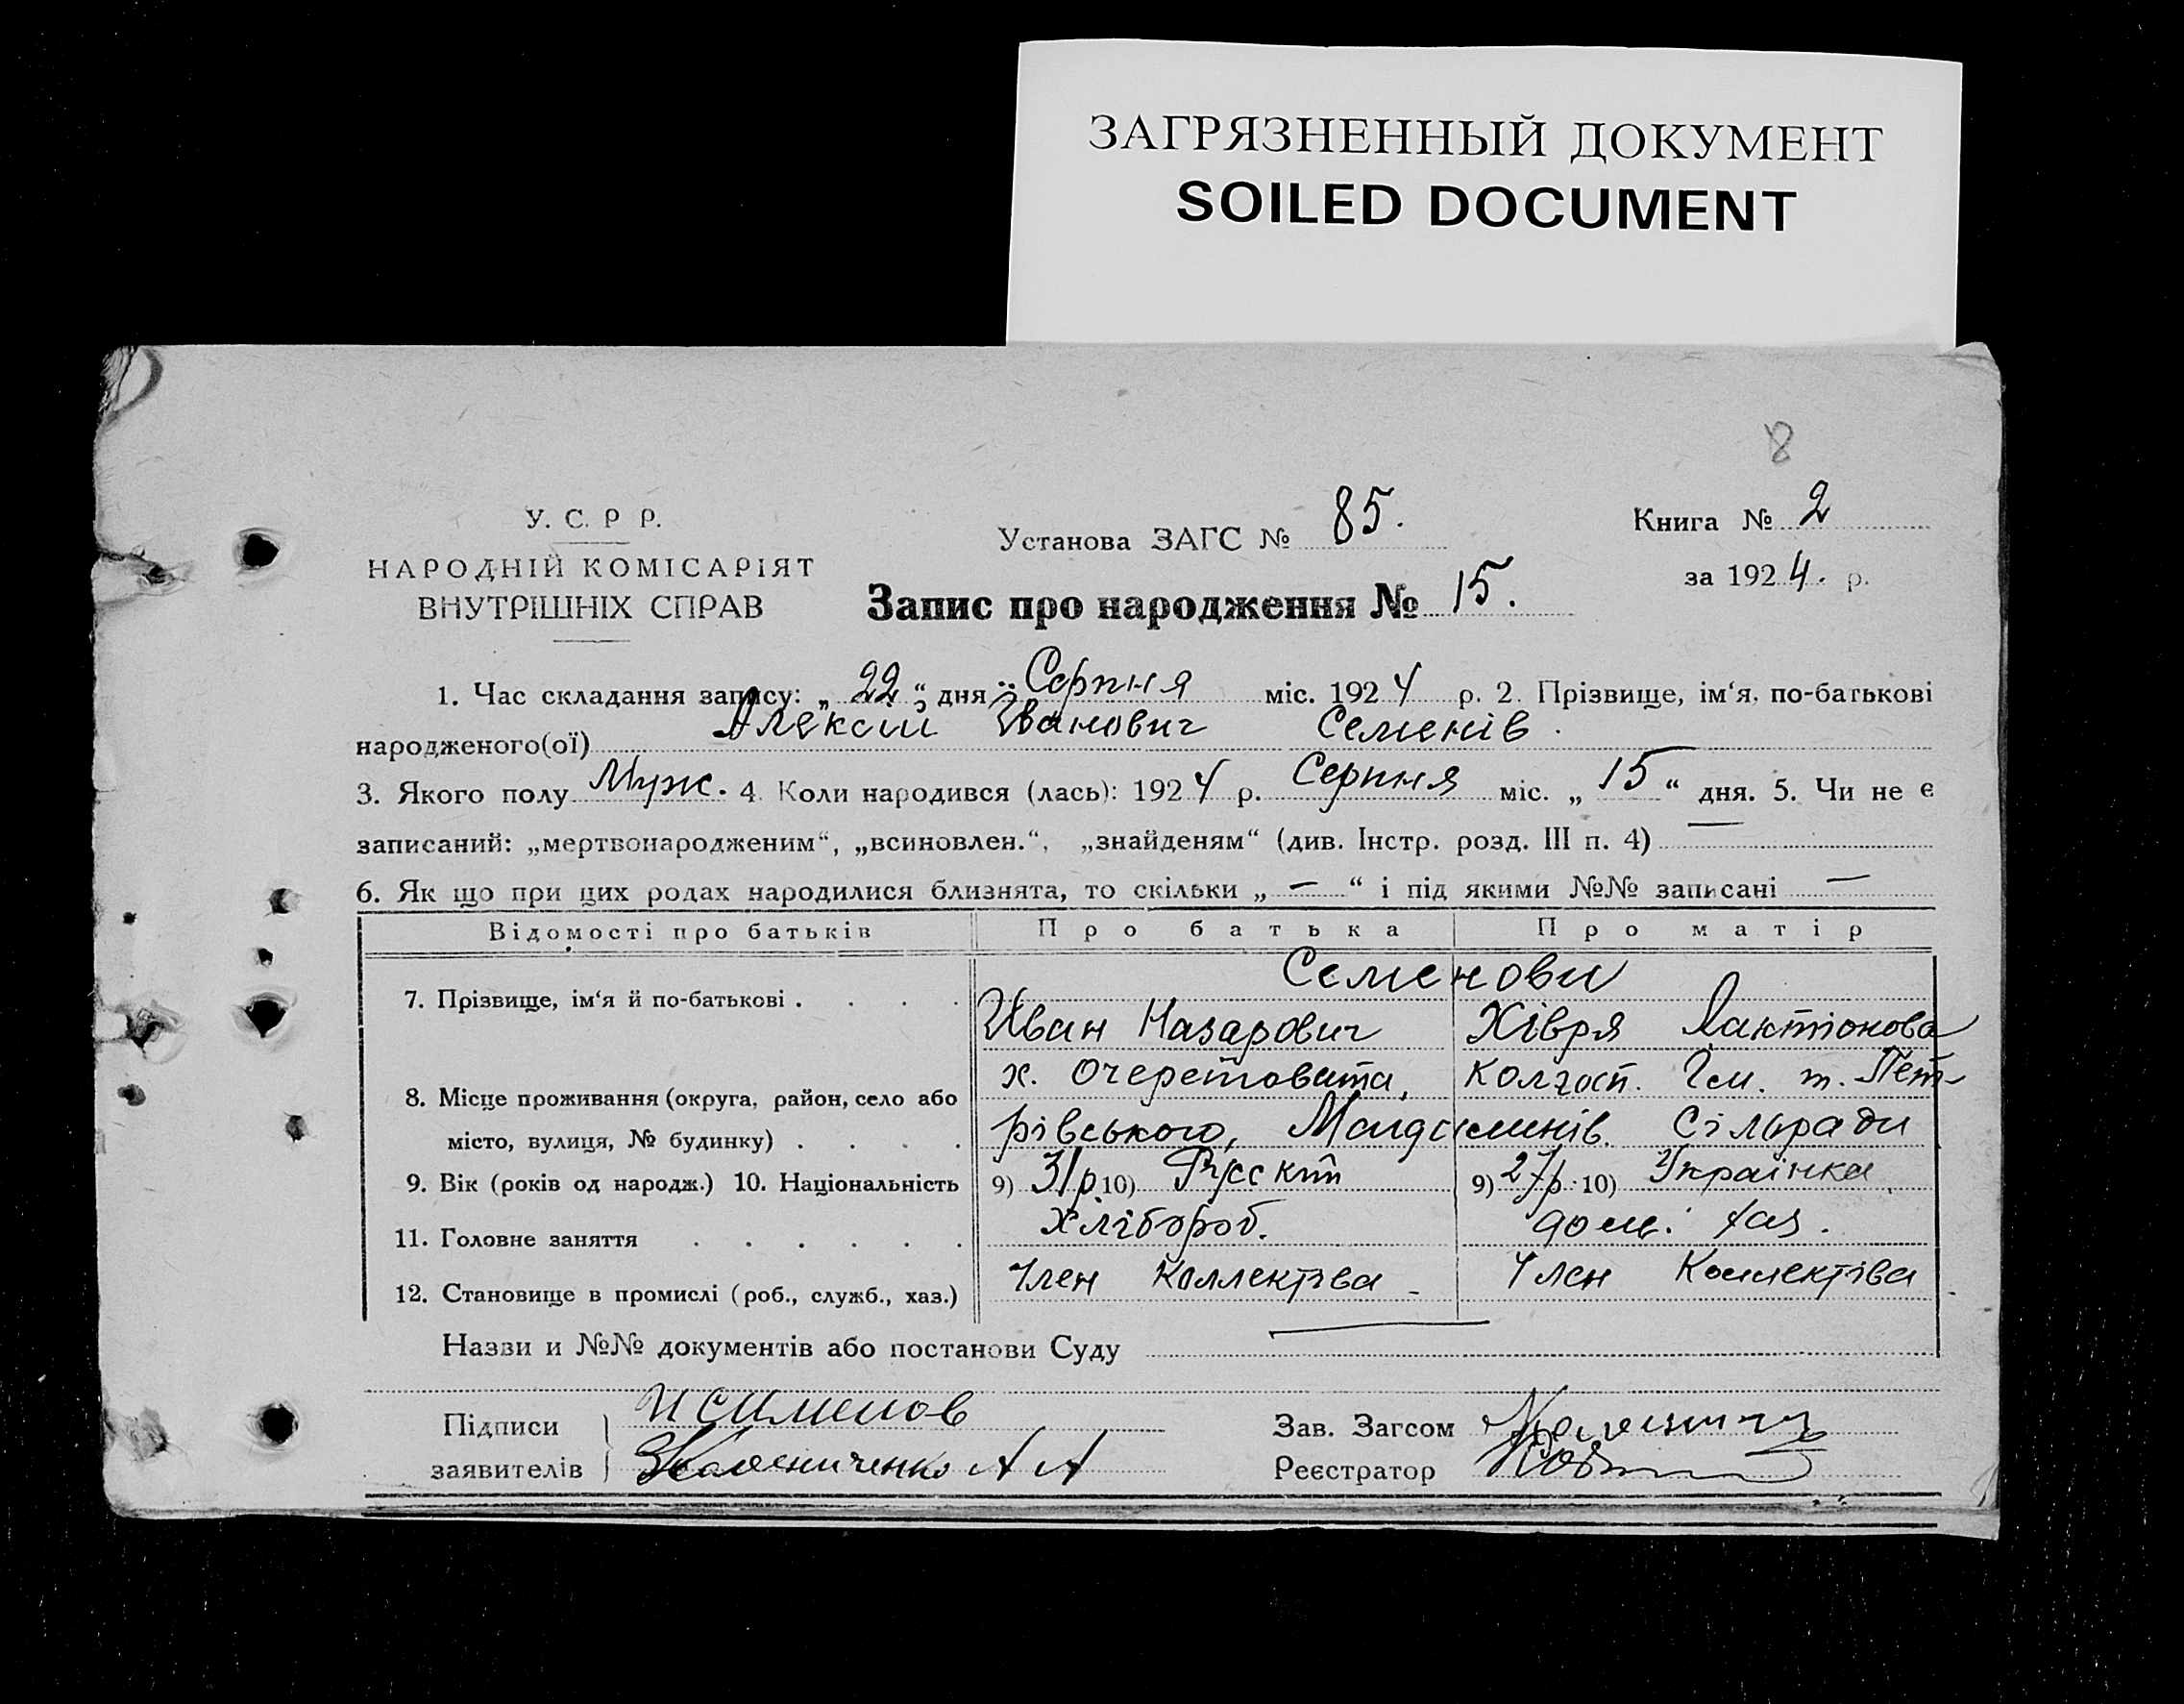 ЗАГРЯЗНЕННЫЙ ДОКУМЕНТ
SOILED DOCUMENT
8
У. С. Р Р.
НАРОДНІЙ КОМІСАРІЯТ
ВНУТРІШНІХ СПРАВ
Установа ЗАГС № 85.
Запис про народження № 15.
Книга № 2
за 1924. р.
1. Час складання запису: „22“ дня Серпня міс. 1924 р. 2. Прізвище, ім‘я, по-батькові
народженого(ої) Алексій Іванович Семенів.
3. Якого полу Муж. 4. Коли народився (лась): 1924 р. Серпня міс. „15“ дня. 5. Чи не є
записаний: „мертвонародженим“, „всиновлен.“, „знайденям“ (див. Інстр. розд. III п. 4) —
6. Як що при цих родах народилися близнята, то скільки „—“ і під якими №№ записані —
Відомості про батьків Про батька Про матір
Семенови
7. Прізвище, ім‘я й по-батькові . . . . Иван Назарович Хівря Лактіонова
х. Очеретовата, колгосп. Ім. т. Пет-
8. Місце проживання (округа, район, село або
місто, вулиця, № будинку) . . . . рівського, Сільради
9. Вік (років од народж.) 10. Національність 9) 31р. 10) 9) 27р. 10) Українка
11. Головне заняття . . . . . . Хлібороб. дом. хаз.
12. Становище в промислі (роб., служб., хаз.) Член Коллектіва Член Коллектіва
Назви и №№ документів або постанови Суду —
Підписи
заявителів
И Сименов
Колениченко А А
Зав. Загсом
Реєстратор